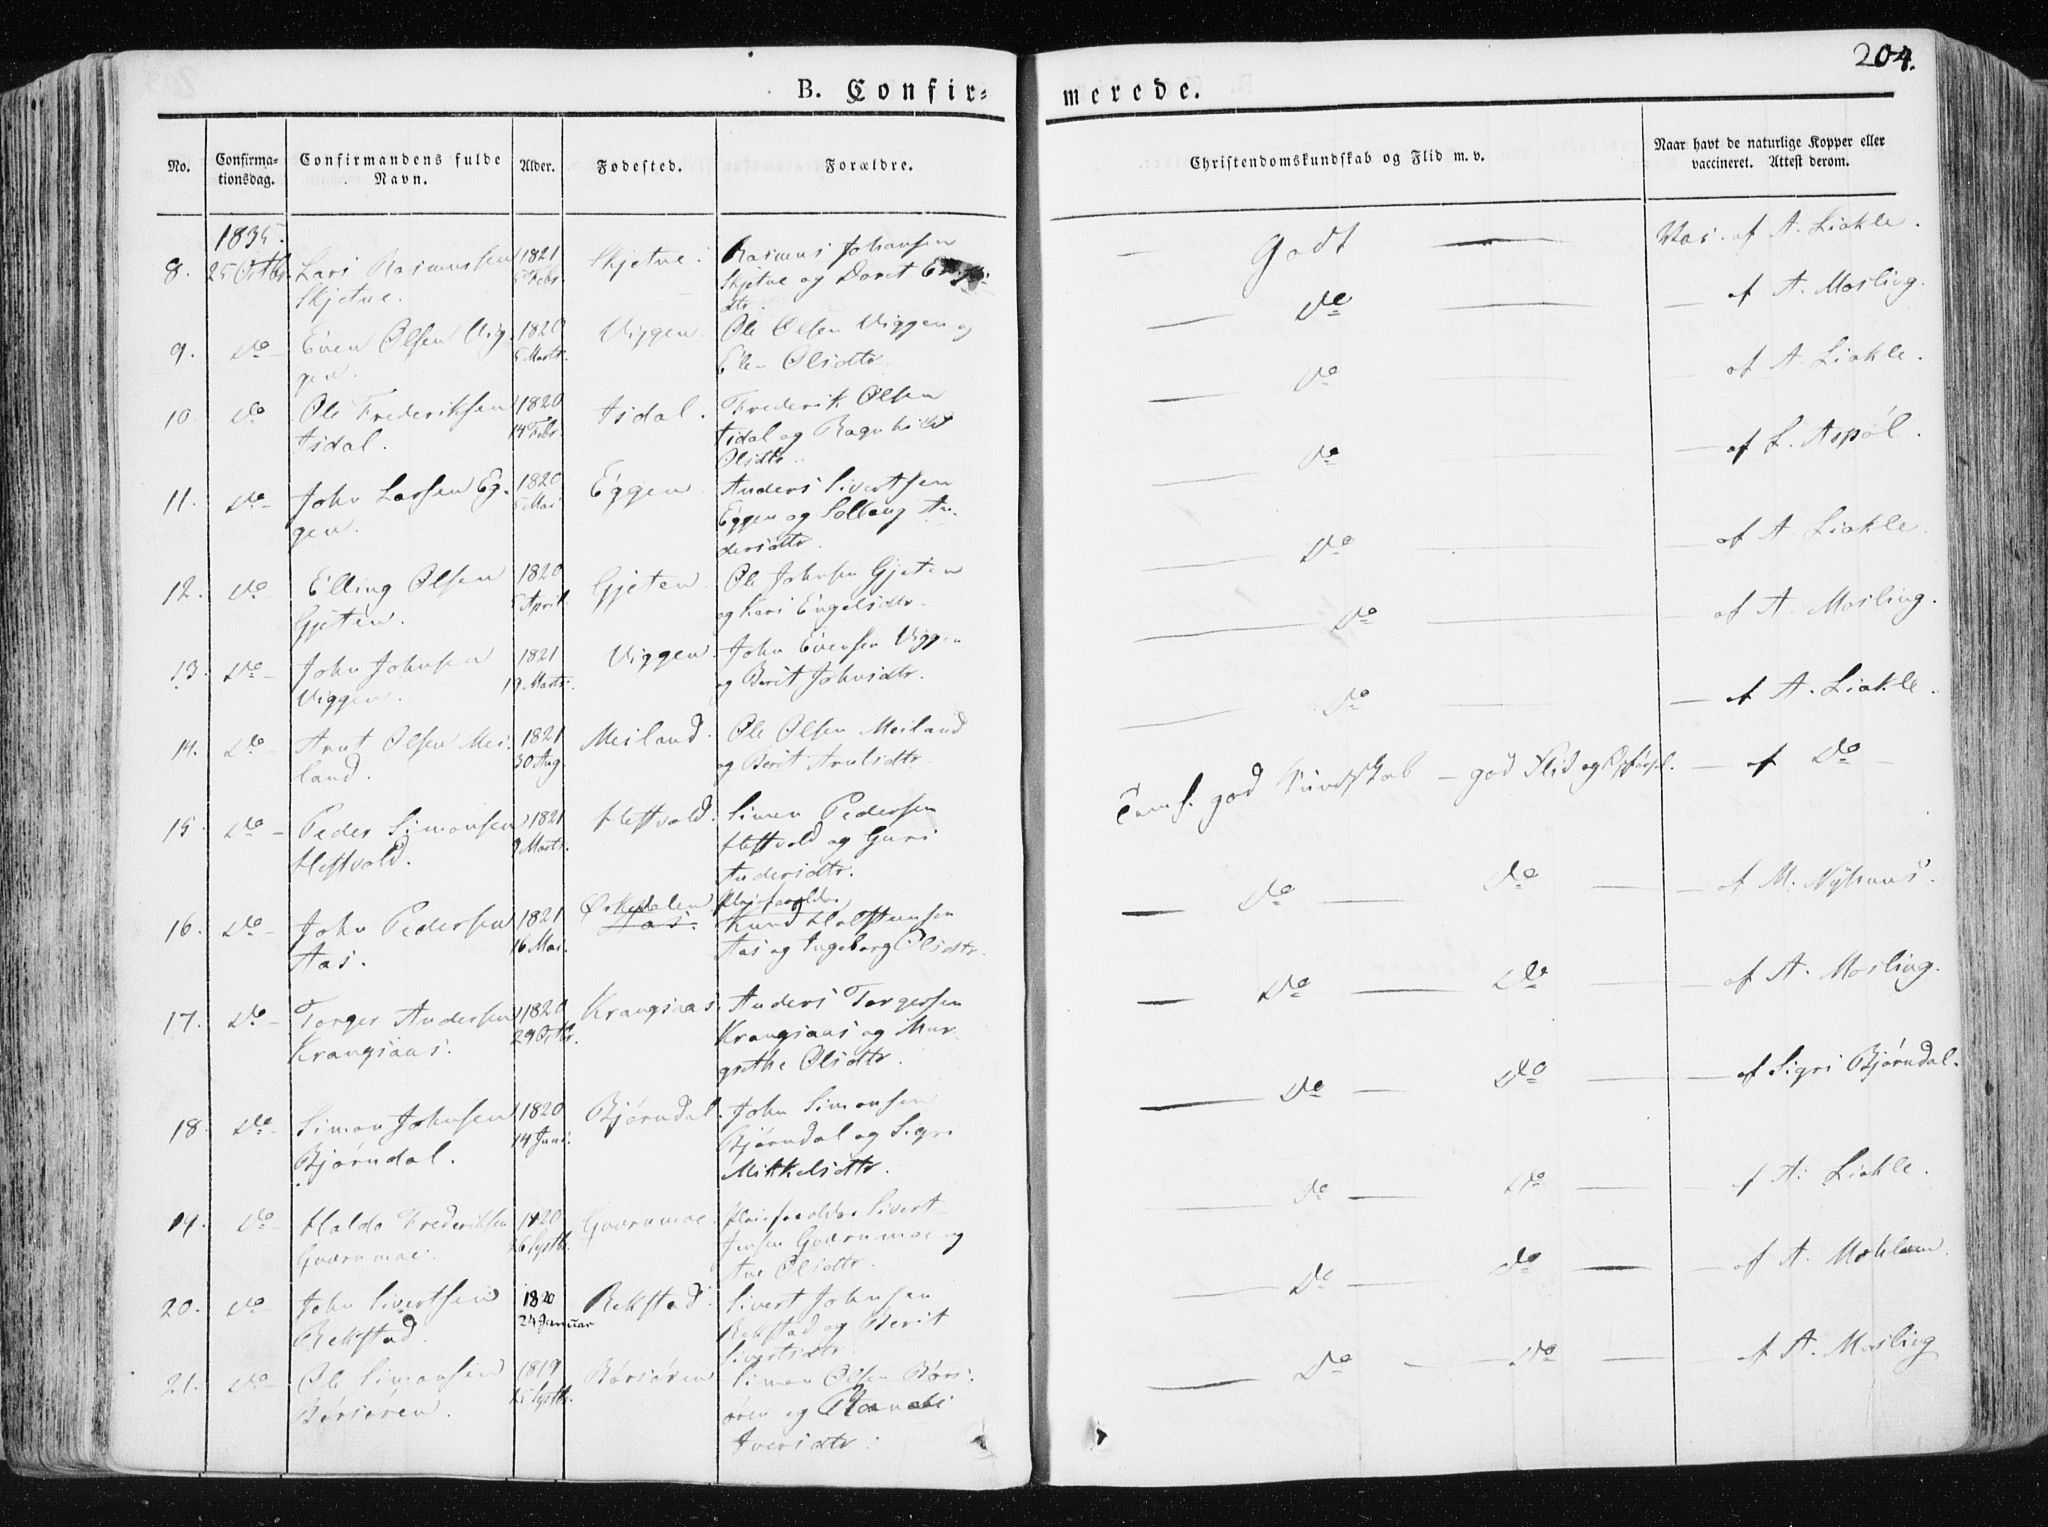 204.
B. Confir-
merede.
No.
Confirma-
tionsdag.
Confirmandens fulde
Navn.
Alder.
Fødested.
Forældre.
Christendomskundskab og Flid m. v.
Naar havt de naturlige Kopper eller
vaccineret. Attest derom.
1835.
8. 25 Octbr. Lars Rasmussen 1821 Skjetne. Rasmus Johansen Godt Vac. af A. Liakle.
Skjetne. Febr. Skjetne og Doret
dtr.
9. Do Even Olsen Vig- 1820 Viggen. Ole Olsen Viggen og Do af A. Mosling.
gen. 5 Marts. Elen Olsdtr.
10. Do Ole Frederiksen 1820 Isdal. Frederik Olsen Do af A. Liakle.
Isdal. 14 Febr. Isdal og Ragnhild
Olsdtr.
11. Do John Larsen Eg- 1820 Eggen. Anders Sivertsen Do af L. Aspøl.
gen. 5 Mai Eggen og Sollaug An-
dersdtr.
12. Do Elling Olsen 1820 Gjeten. Ole Johnsen Gjeten Do af A. Liakle.
Gjeten. 5 April og Kari Engelsdtr.
13. Do John Johnsen 1821 Viggen. John Evensen Viggen Do af A. Mosling.
Viggen. 19 Marts. og Berit Johnsdtr.
14. Do Arnt Olsen Mei- 1821 Meiland. Ole Olsen Meiland Do af A. Liakle.
land. 30 Aug. og Berit Arntsdtr.
15. Do Peder Simonsen 1821 Heftvold. Simen Pedersen Temf. god Kundskab – god Flid og Opførsel. af Do
Heftvold. 9 Marts. Heftvold og Guri
Andersdtr.
16. Do John Pedersen 1821 Ørkedalen Aas. Pleieforældre Do Do af M. Nyhuus.
Aas. 16 Mai. Knud Halstensen
Aas og Ingeborg Olsdtr.
17. Do Torger Andersen 1820 Krangsaas. Anders Torgersen Do Do af A. Mosling.
Krangsaas. 29 Octbr. Krangsaas og Mar-
grethe Olsdtr.
18. Do Simon Johnsen 1820 Bjørndal. John Simonsen Do Do af Sigri Bjørndal.
Bjørndal. 14 Juni. Bjørndal og Sigri
Mikkelsdtr.
19. Do Haldo Frederiksen 1820 Gværnmoe. Pleieforældre Sivert Do Do af A. Liakle.
Gværnmoe. Septbr. Jensen Gværnmoe og
Ane Olsdtr.
20. Do John Sivertsen 1820 Rekstad. Sivert Johnsen Do Do af A.
Rekstad. 24 Januar Rekstad og Berit
Sivertsdtr.
21. Do Ole Simonsen 1819 Børsøren Simon Olsen Børs- Do Do af A. Mosling
Børsøren. Septbr. øren og
Iversdtr.